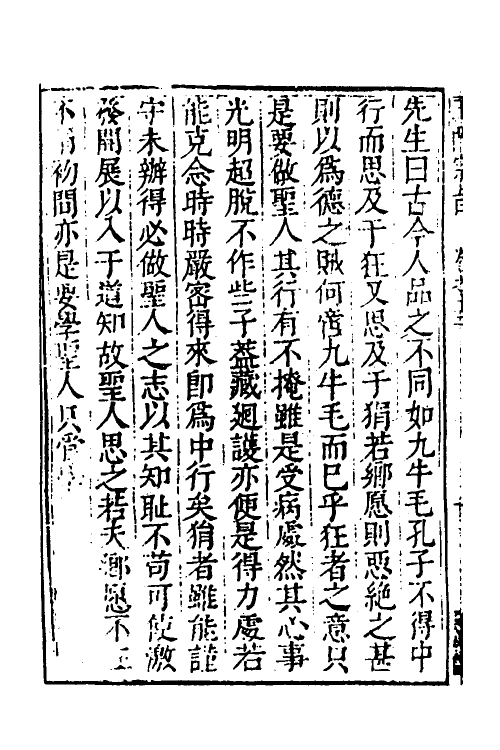 先生曰古今人品之不同如九牛毛孔子不得中
行而思及于狂又思及于狷若鄉愿則惡絶之甚
則以爲德之賊何啻九牛毛而巳乎狂者之意只
是要做聖人其行有不掩雖是受病處然其心事
光明超脫不作些子葢藏廻護亦便是得力處若
能克念時時嚴密得來卽爲中行矣狷者雖能謹
守未辦得必做聖人之志以其知耻不苟可使激
發開展以入于道知故聖人思之若夫鄉愿不
不肯初間亦是要學聖人只管